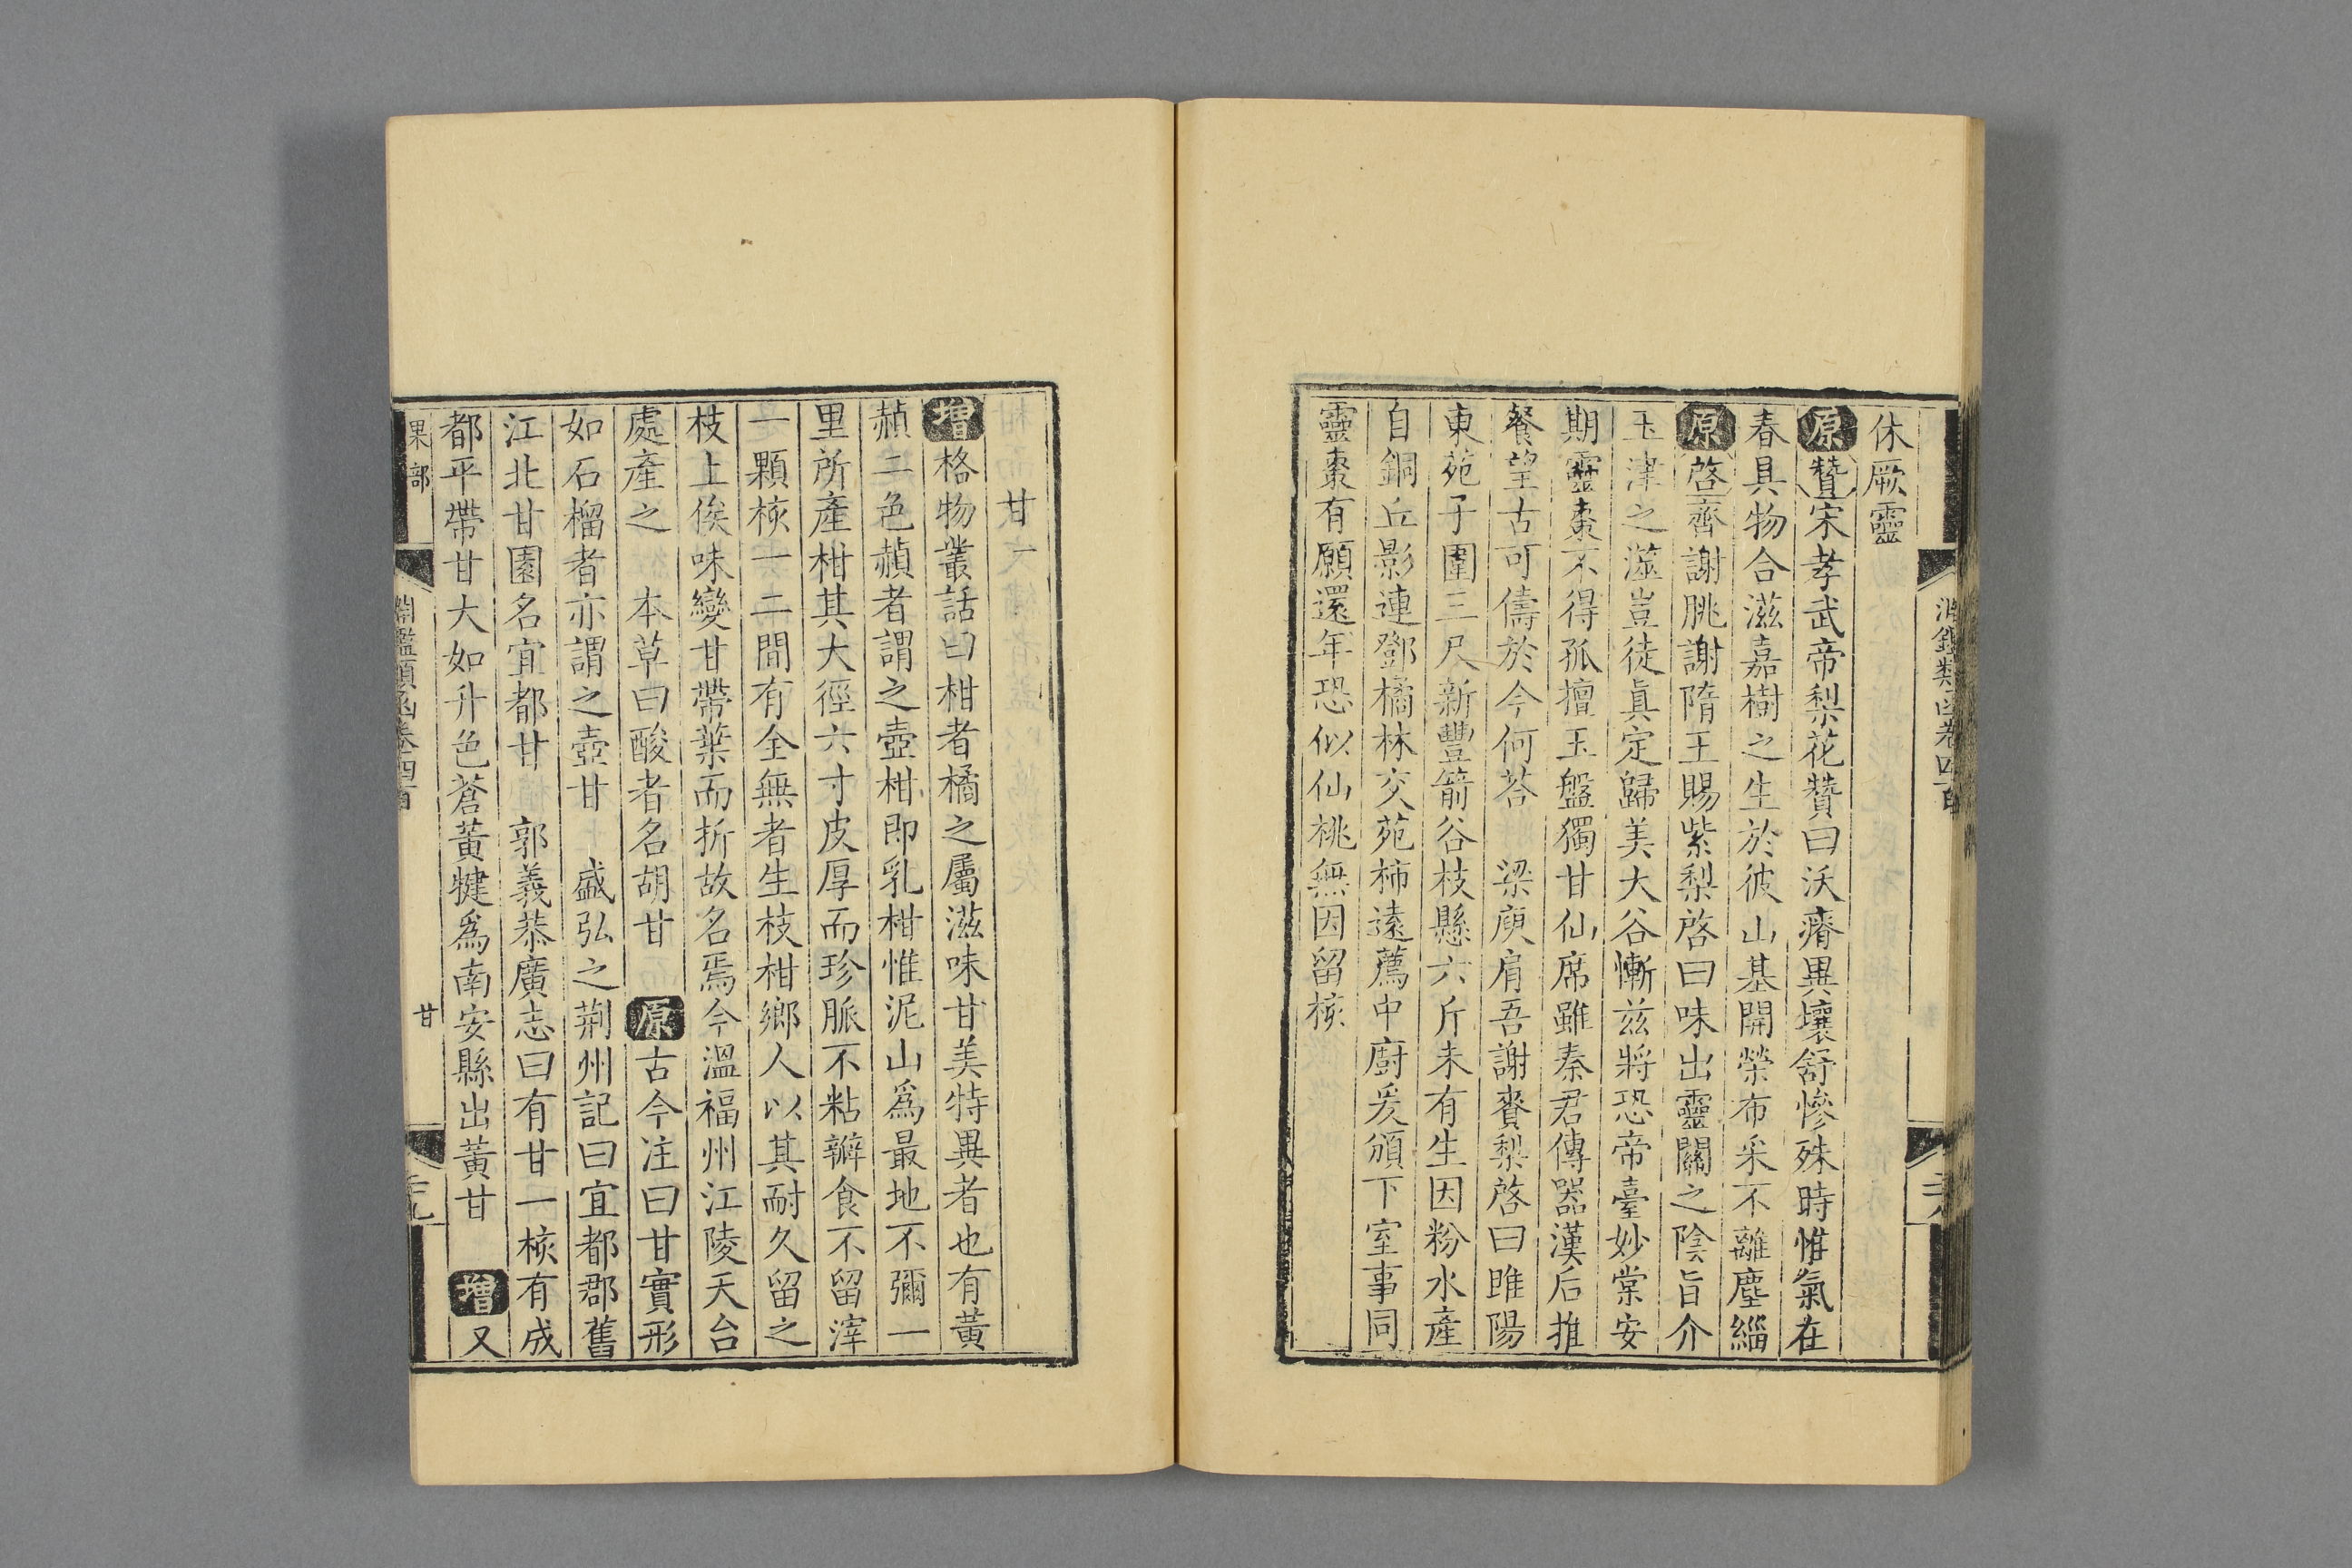 休厥靈
原贊宋孝武帝梨花贊曰沃瘠異壤舒慘殊時惟氣在
春具物合滋嘉樹之生於彼山基開榮布采不離塵緇
原啓齊謝朓謝隋王賜紫梨啓曰味出靈關之陰旨介
玉津之澨豈徒眞定歸美大谷慚茲將恐帝臺妙棠安
期靈棗不得孤擅玉盤獨甘仙席雖秦君傳器漢后推
餐望古可儔於今何荅 梁庾肩吾謝賚梨啓曰睢陽
東苑子圍三尺新豐箭谷枝懸六斤未有生因粉水產
自銅丘影連鄧橘林交苑柿遠薦中廚爰頒下室事同
靈棗有願還年恐似仙桃無因留核
甘一
增格物叢話曰柑者橘之屬滋味甘美特異者也有黃
赬二色赬者謂之壺柑即乳柑惟泥山爲最地不彌一
里所產柑其大徑六寸皮厚而珍脈不粘瓣食不留滓
一顆核一二間有全無者生枝柑鄉人以其耐久留之
枝上俟味變甘帶葉而折故名焉今溫福州江陵天台
處產之 本草曰酸者名胡甘 原古今注曰甘實形
如石榴者亦謂之壺甘 盛弘之荊州記曰宜都郡舊
江北甘園名宜都甘 郭義恭廣志曰有甘一核有成
都平帶甘大如升色蒼黃犍爲南安縣出黃甘 增又
果部
淵鑑類函卷四百
甘